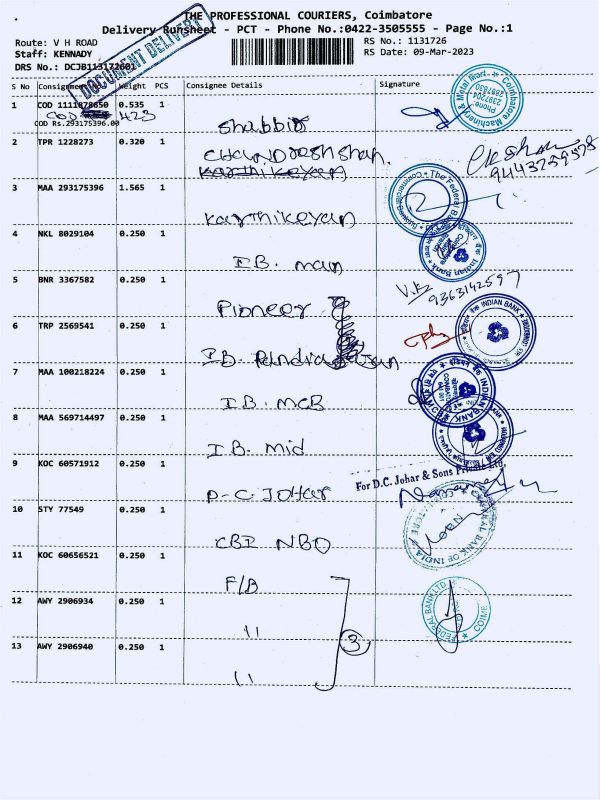 THE PROFESSIONAL COURIERS, Coimbatore
Delivery Runsheet - PCT - Phone No.:0422-3505555 - Page No.:1
Route: V H ROAD
Staff: KENNADY
DRS No.: DCJB113172601
RS No.: 1131726
RS Date: 09-Mar-2023
DOCUMENT DELIVERY
S No Consignment Weight PCS Consignee Details Signature
1 COD 1111878650 0.535 1
COD 423
COD Rs.293175396.00
Shabbir
Coimbatore Machinery & Metal Mart
Phone
2397204
2397830
2 TPR 1228273 0.320 1
Chandresh shah.
Karthikeyan
9443259578
3 MAA 293175396 1.565 1
Karthikeyan
The Federal Bank
4 NKL 8029104 0.250 1
I.B. main
Indian Bank
5 BNR 3367582 0.250 1
Pioneer
V.K
9363142597
6 TRP 2569541 0.250 1
INDIAN BANK
7 MAA 100218224 0.250 1
I.B. MCB
INDIAN BANK
8 MAA 569714497 0.250 1
I.B. Mid
9 KOC 60571912 0.250 1
D.C Johar
For D.C. Johar & Sons Private Ltd,
10 STY 77549 0.250 1
CBI NBO
CENTRAL BANK OF INDIA
11 KOC 60656521 0.250 1
F/B
12 AWY 2906934 0.250 1
"
3
FEDERAL BANK LTD
COIMB
13 AWY 2906940 0.250 1
"